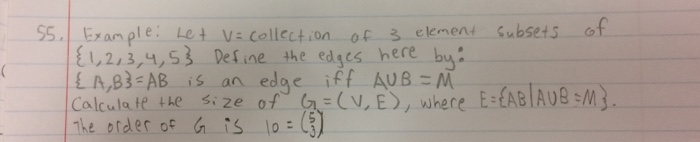 55. Example: Let V = collection of 3 element subsets of
{1,2,3,4,5} Define the edges here by:
{A,B}=AB is an edge iff A∪B = M
Calculate the size of G = (V, E), where E={AB|A∪B=M}.
The order of G is 10 = (5 3)